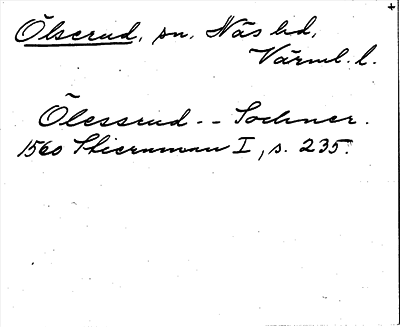 Ölserud, sn, Näs hd,
Värml. l.
Ölesserud -- Sochner.
1560 Stiernman I, s. 235.